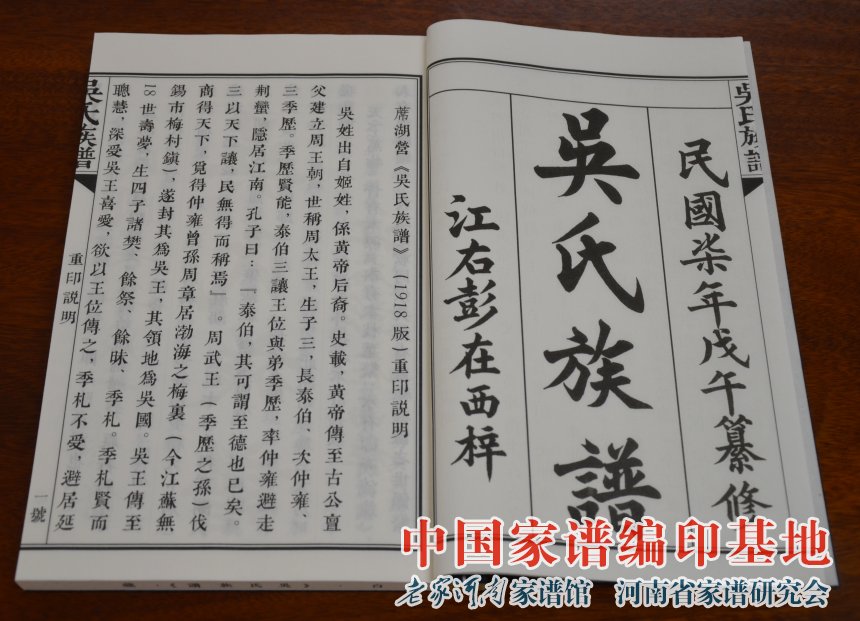 吳氏族譜
民國柒年戊午纂修
吳氏族譜
江右彭在西梓
蓆湖營《吳氏族譜》(1918版)重印説明
吳姓出自姬姓,係黃帝后裔。史載,黃帝傳至古公亶
父建立周王朝,世稱周太王,生子三,長泰伯、次仲雍、
三季歷。季歷賢能,泰伯三讓王位與弟季歷,率仲雍避走
荆蠻,隱居江南。孔子曰:『泰伯,其可謂至德也已矣。
三以天下讓,民無得而稱焉』。周武王(季歷之孫)伐
商得天下,覓得仲雍曾孫周章居渤海之梅裏(今江蘇無
錫市梅村鎮),遂封其爲吳王,其領地爲吳國。吳王傳至
18世壽夢,生四子諸樊、餘祭、餘昧、季札。季札賢而
聰慧,深受吳王喜愛,欲以王位傳之,季札不受,避居延
吳氏族譜
重印説明
一號
中国家谱编印基地
老家河南家谱馆 河南省家谱研究会